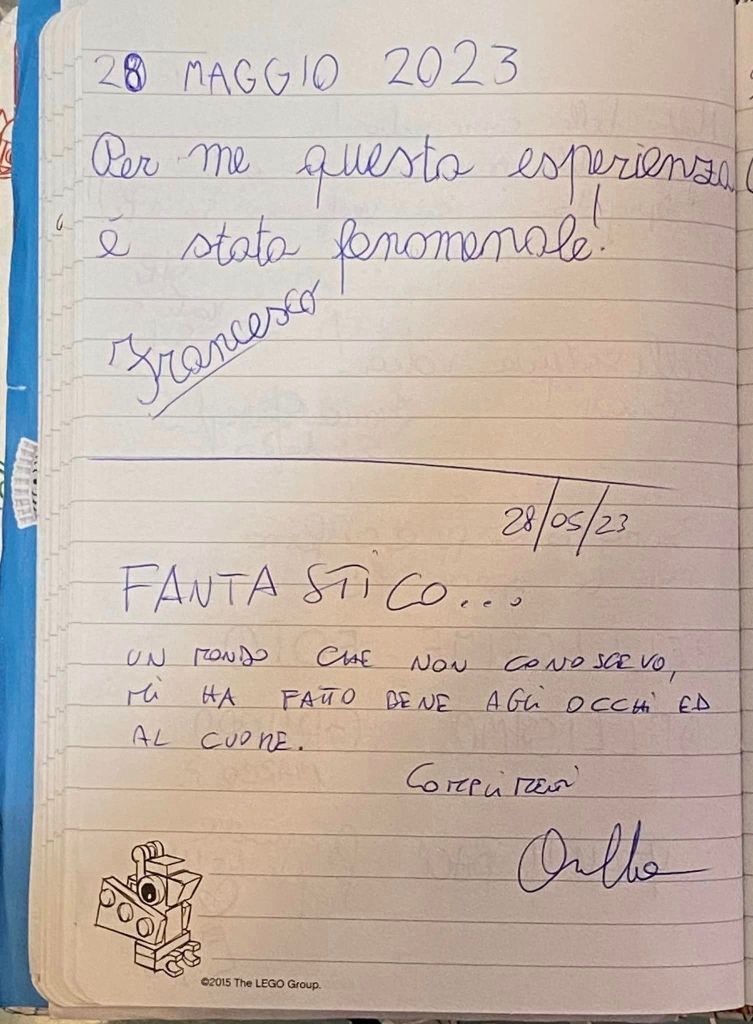 28 MAGGIO 2023
Per me questa esperienza
é stata fenomenale!
Francesco
28/05/23
FANTASTICO...
UN MONDO CHE NON CONOSCEVO,
MI HA FATTO BENE AGLI OCCHI ED
AL CUORE.
COMPLIMENTI
©2015 The LEGO Group.